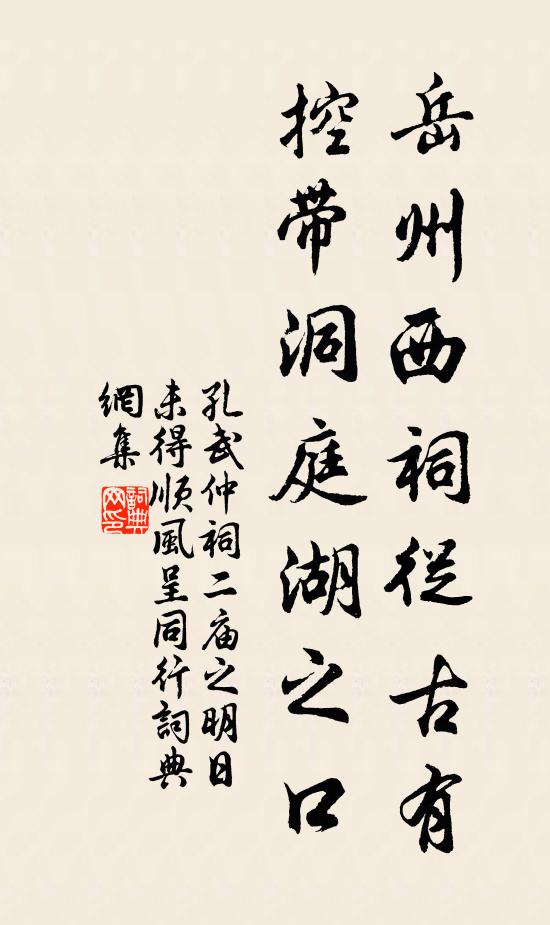 岳州西祠從古有
控帶洞庭湖之口
孔武仲祠二庙之明日
未得順風呈同行詞典
網集
詞典网印